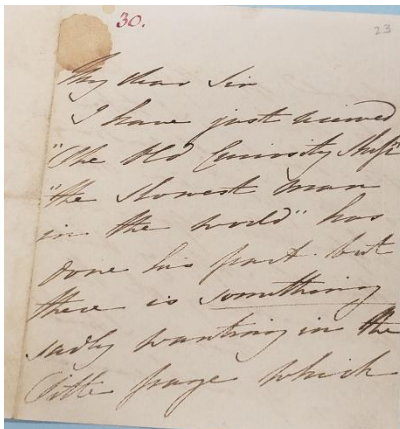 30.
23
My dear Sir
I have just received
"The Old Curiosity Shop"
"the slowest man
in the world" has
done his part. but
there is something
sadly wanting in the
Title page which